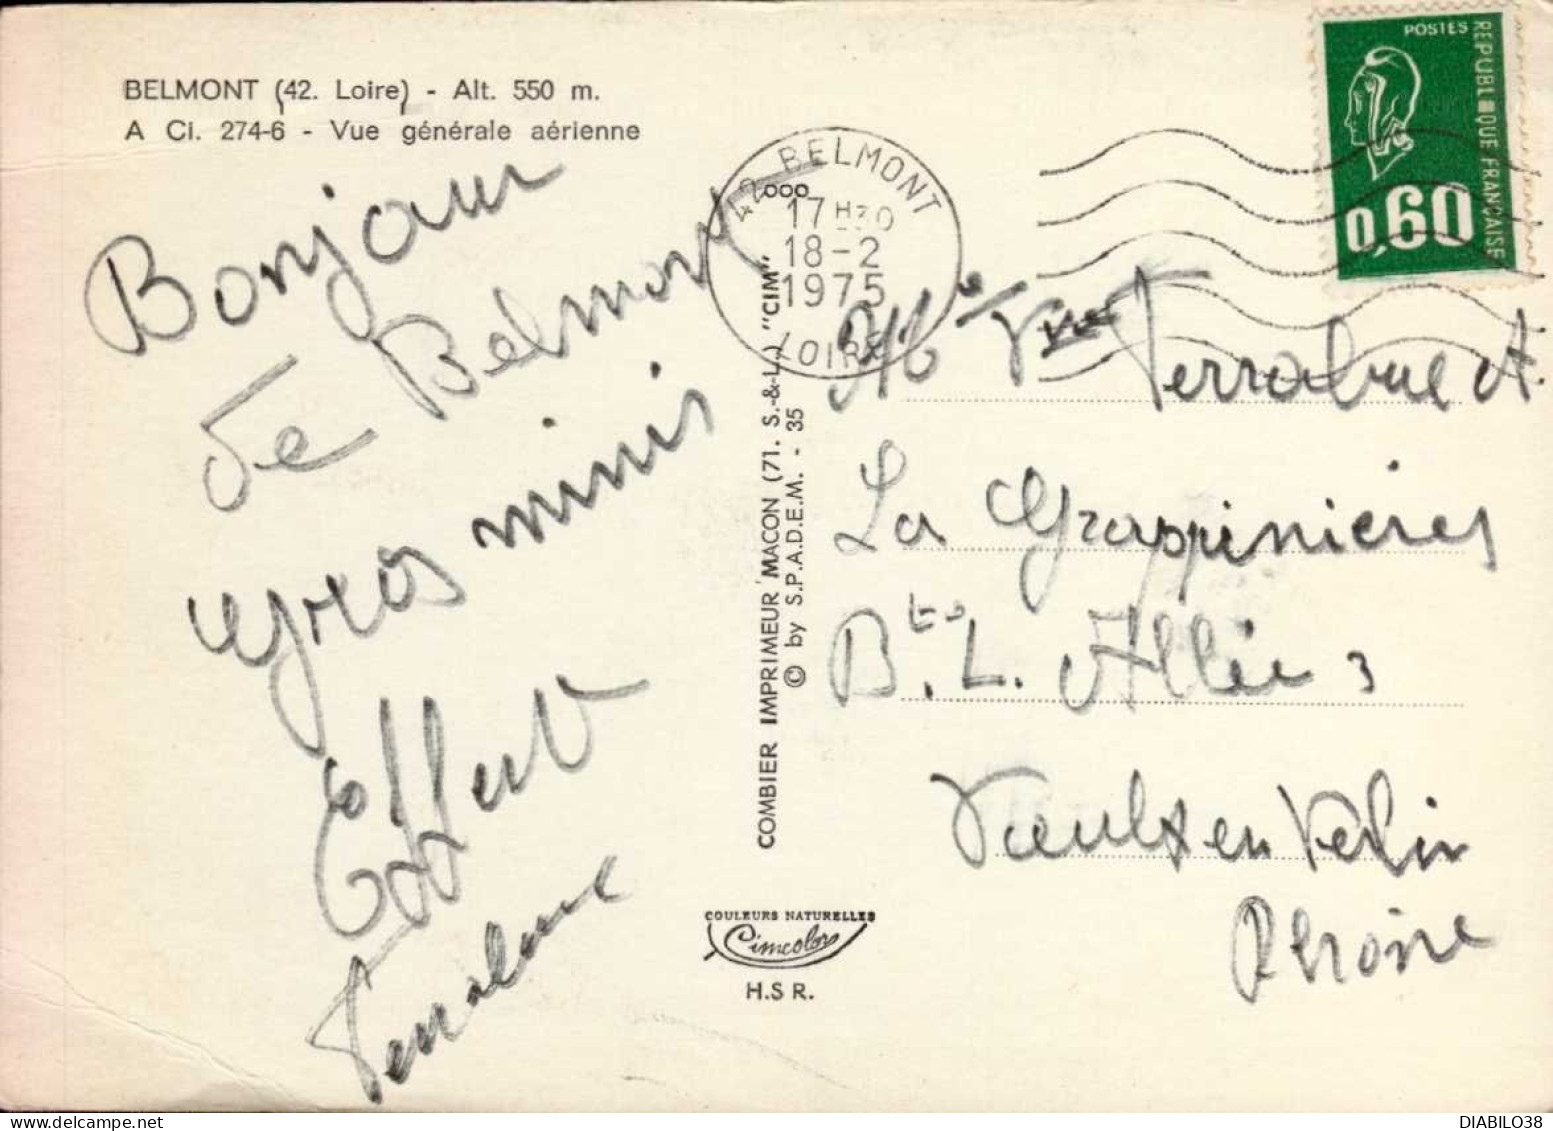 BELMONT (42. Loire) - Alt. 550 m.
A Ci. 274-6 - Vue générale aérienne
Bonjour
de Belmont
gros minis
Terrabue
42 BELMONT
17 H30
18-2
1975
LOIRE
POSTES
REPUBLIQUE FRANÇAISE
0,60
COMBIER IMPRIMEUR MACON (71. S.-&-L.) "CIM"
© by S.P.A.D.E.M. - 35
Terrabue A.
La Grappinières
Bt L. Allée 3
Vaulx en Velin
Rhône
COULEURS NATURELLES
Cimcolors
H.S R.
DIABILO38